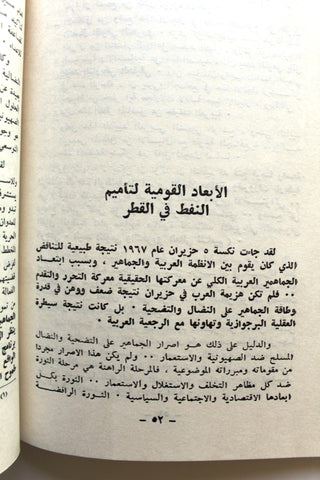 الأبعاد القومية لتأميم
النفط في القطر
لقد جاءت نكسة ٥ حزيران عام ١٩٦٧ نتيجة طبيعية للتناقض
الذي كان يقوم بين الانظمة العربية والجماهير ، وبسبب ابتعاد
الجماهير العربية الكلي عن معركتها الحقيقية معركة التحرر والتقدم
٠٠ فلم تكن هزيمة العرب في حزيران نتيجة ضعف ووهن في قدرة
وطاقة الجماهير على النضال والتضحية ٠ بل كانت نتيجة سيطرة
العقلية البرجوازية وتهاونها مع الرجعية العربية ٠
والدليل على ذلك هو اصرار الجماهير على التضحية والنضال
المسلح ضد الصهيونية والاستعمار ٠٠ ولم يكن هذا الاصرار مجردا
من مقوماته ومبرراته الموضوعية ٠ فالمرحلة الراهنة هي مرحلة الثورة
ضد كل مظاهر التخلف والاستغلال والاستعمار ٠٠ الثورة بكل
ابعادها الاقتصادية والاجتماعية والسياسية ٠ الثورة الرافضة
ـ ٥٢ ـ